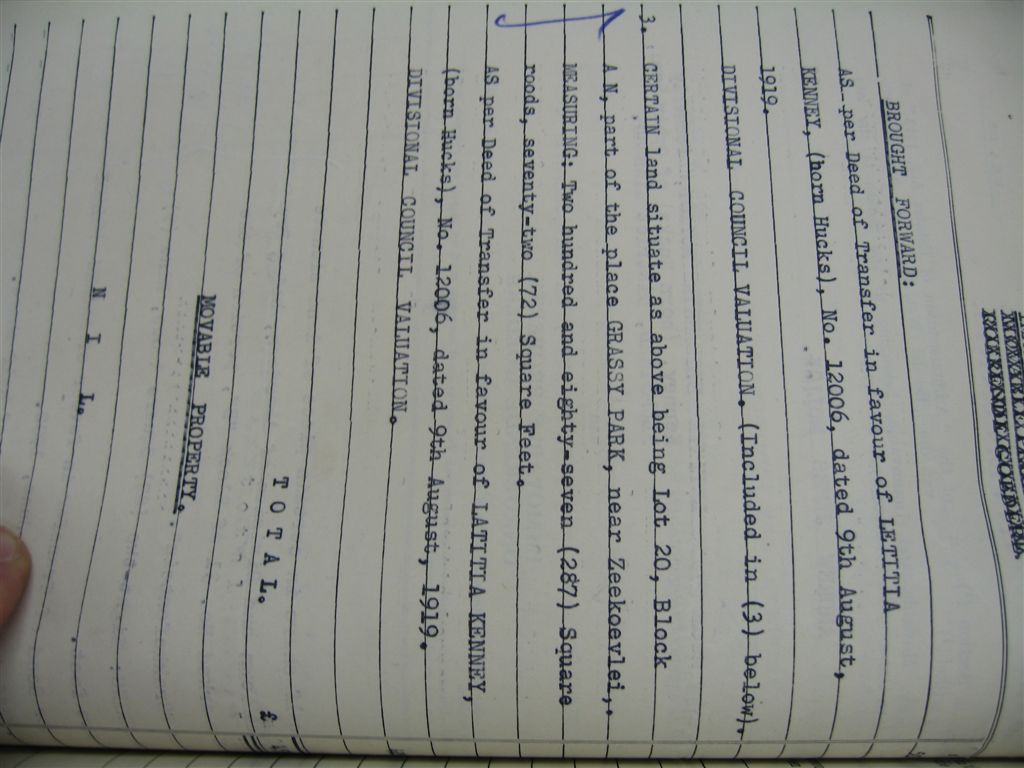 BROUGHT FORWARD:
AS per Deed of Transfer in favour of LETITIA
KENNEY, (born Hucks), No. 12006, dated 9th August,
1919.
DIVISIONAL COUNCIL VALUATION. (Included in (3) below).
3. CERTAIN land situate as above being Lot 20, Block
A N, part of the place GRASSY PARK, near Zeekoevlei,.
MEASURING: Two hundred and eighty-seven (287) Square
roods, seventy-two (72) Square Feet.
AS per Deed of Transfer in favour of LATITIA KENNEY,
(born Hucks), No. 12006, dated 9th August, 1919.
DIVISIONAL COUNCIL VALUATION.
T O T A L. £
MOVABLE PROPERTY.
N I L.